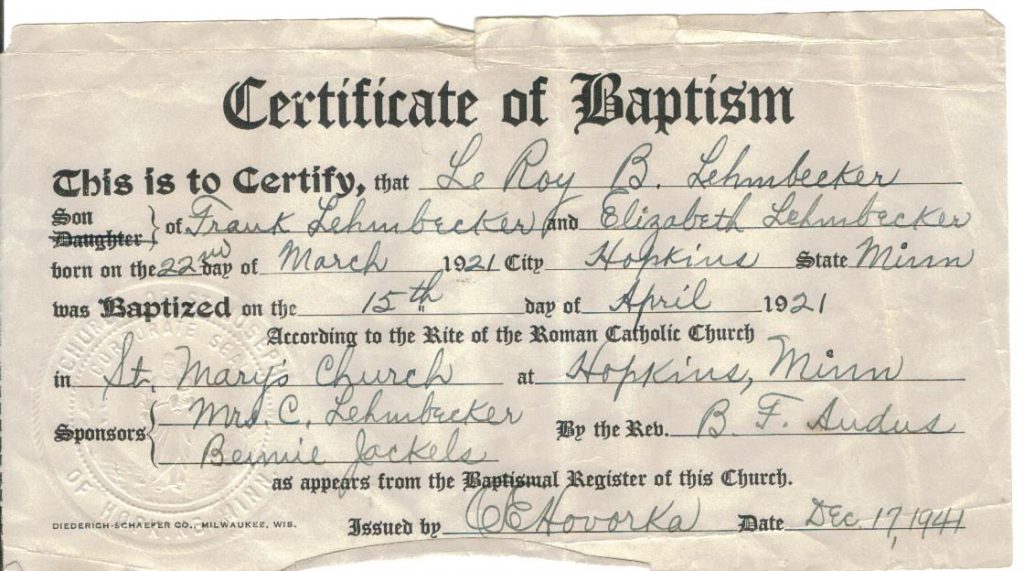 Certificate of Baptism
This is to Certify, that Le Roy B. Lehmbecker
Son
Daughter } of Frank Lehmbecker and Elizabeth Lehmbecker
born on the 22nd day of March 1921 City Hopkins State Minn
was Baptized on the 15th day of April 1921
According to the Rite of the Roman Catholic Church
in St. Mary's Church at Hopkins, Minn
Sponsors { Mrs. C. Lehmbecker
By the Rev. B. F. Audus
Bennie Jackels
as appears from the Baptismal Register of this Church.
DIEDERICH-SCHAEFER CO., MILWAUKEE, WIS.
Issued by Hovorka Date Dec. 17, 1941
CORPORATE SEAL